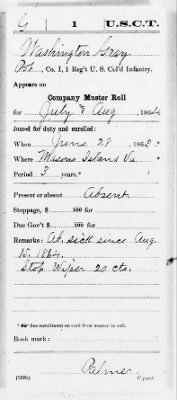 G | 1 | U.S.C.T.
Washington Gray
Pvt., Co. I, 1 Reg't U. S. Col'd Infantry.
Appears on
Company Muster Roll
for July & Aug, 1864
Joined for duty and enrolled:
When June 28, 1863.
Where Masons Island Va
Period 3 years.*
Present or absent Absent
Stoppage, $ 100 for
Due Gov't $ 100 for
Remarks: Ab. sick since Aug.
15. 1864.
Stop Wiper 20 cts.
* See enrollment on card from muster-in roll.
Book mark:
Palmer
Copyist.